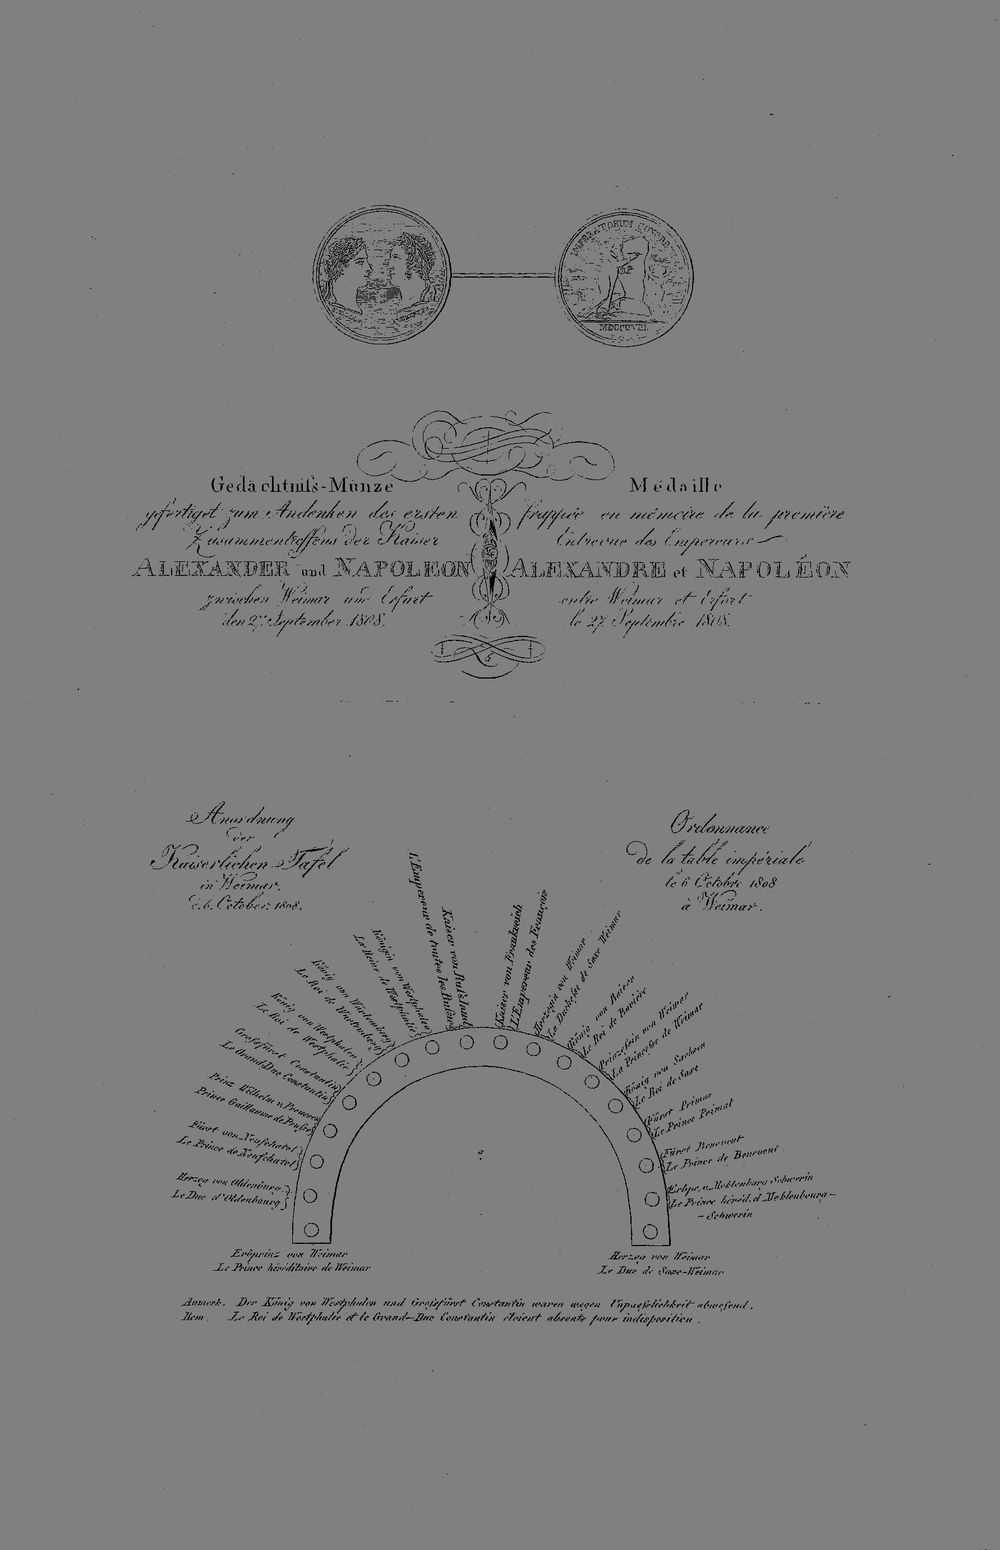 MDCCCVIII.
Gedächtniſs-Münze
gefertiget zum Andenken des ersten
Zusammentreffens der Kaiser
ALEXANDER und NAPOLEON
zwischen Weimar und Erfurt
den 27. September 1808.
Médaille
frappée en mémoire de la première
Entrevue des Empereurs
ALEXANDRE et NAPOLÉON
entre Weimar et Erfort
le 27 Septembre 1808.
Anordnung
der
Kaiserlichen Tafel
in Weimar.
d. 6. October. 1808.
Ordonnance
de la table impériale
le 6 Octobre 1808
à Weimar.
Erbprinz von Weimar
Le Prince héréditaire de Weimar
Herzog von Oldenburg
Le Duc d'Oldenbourg
Fürst von Neufchatel
Le Prince de Neufchatel
Prinz Wilhelm v. Preussen
Prince Guillaume de Prusse
Grosfürst Constantin
Le Grand Duc Constantin
König von Westphalen
Le Roi de Westphalie
König von Würtemberg
Le Roi de Würtemberg
Königin von Westphalen
La Reine de Westphalie
L'Empereur de toutes les Russies
Kaiser von Ruſsland
Kaiser von Frankreich
L'Empereur des François
Herzogin von Weimar
La Duchesse de Saxe Weimar
König von Baiern
Le Roi de Bavière
Prinzessin von Weimar
La Princesse de Weimar
König von Sachsen
Le Roi de Saxe
Fürst Primas
Le Prince Primat
Fürst Benevent
Le Prince de Benevent
Erbpr. v. Meklenburg Schwerin
Le Prince héréd. d. Meklenbourg-
-Schwerin
Herzog von Weimar
Le Duc de Saxe-Weimar
Anmerk. Der König von Westphalen und Groſsfürst Constantin waren wegen Unpaeſslichkeit abwesend.
Rem. Le Roi de Westphalie et le Grand-Duc Constantin étoient absents pour indisposition.